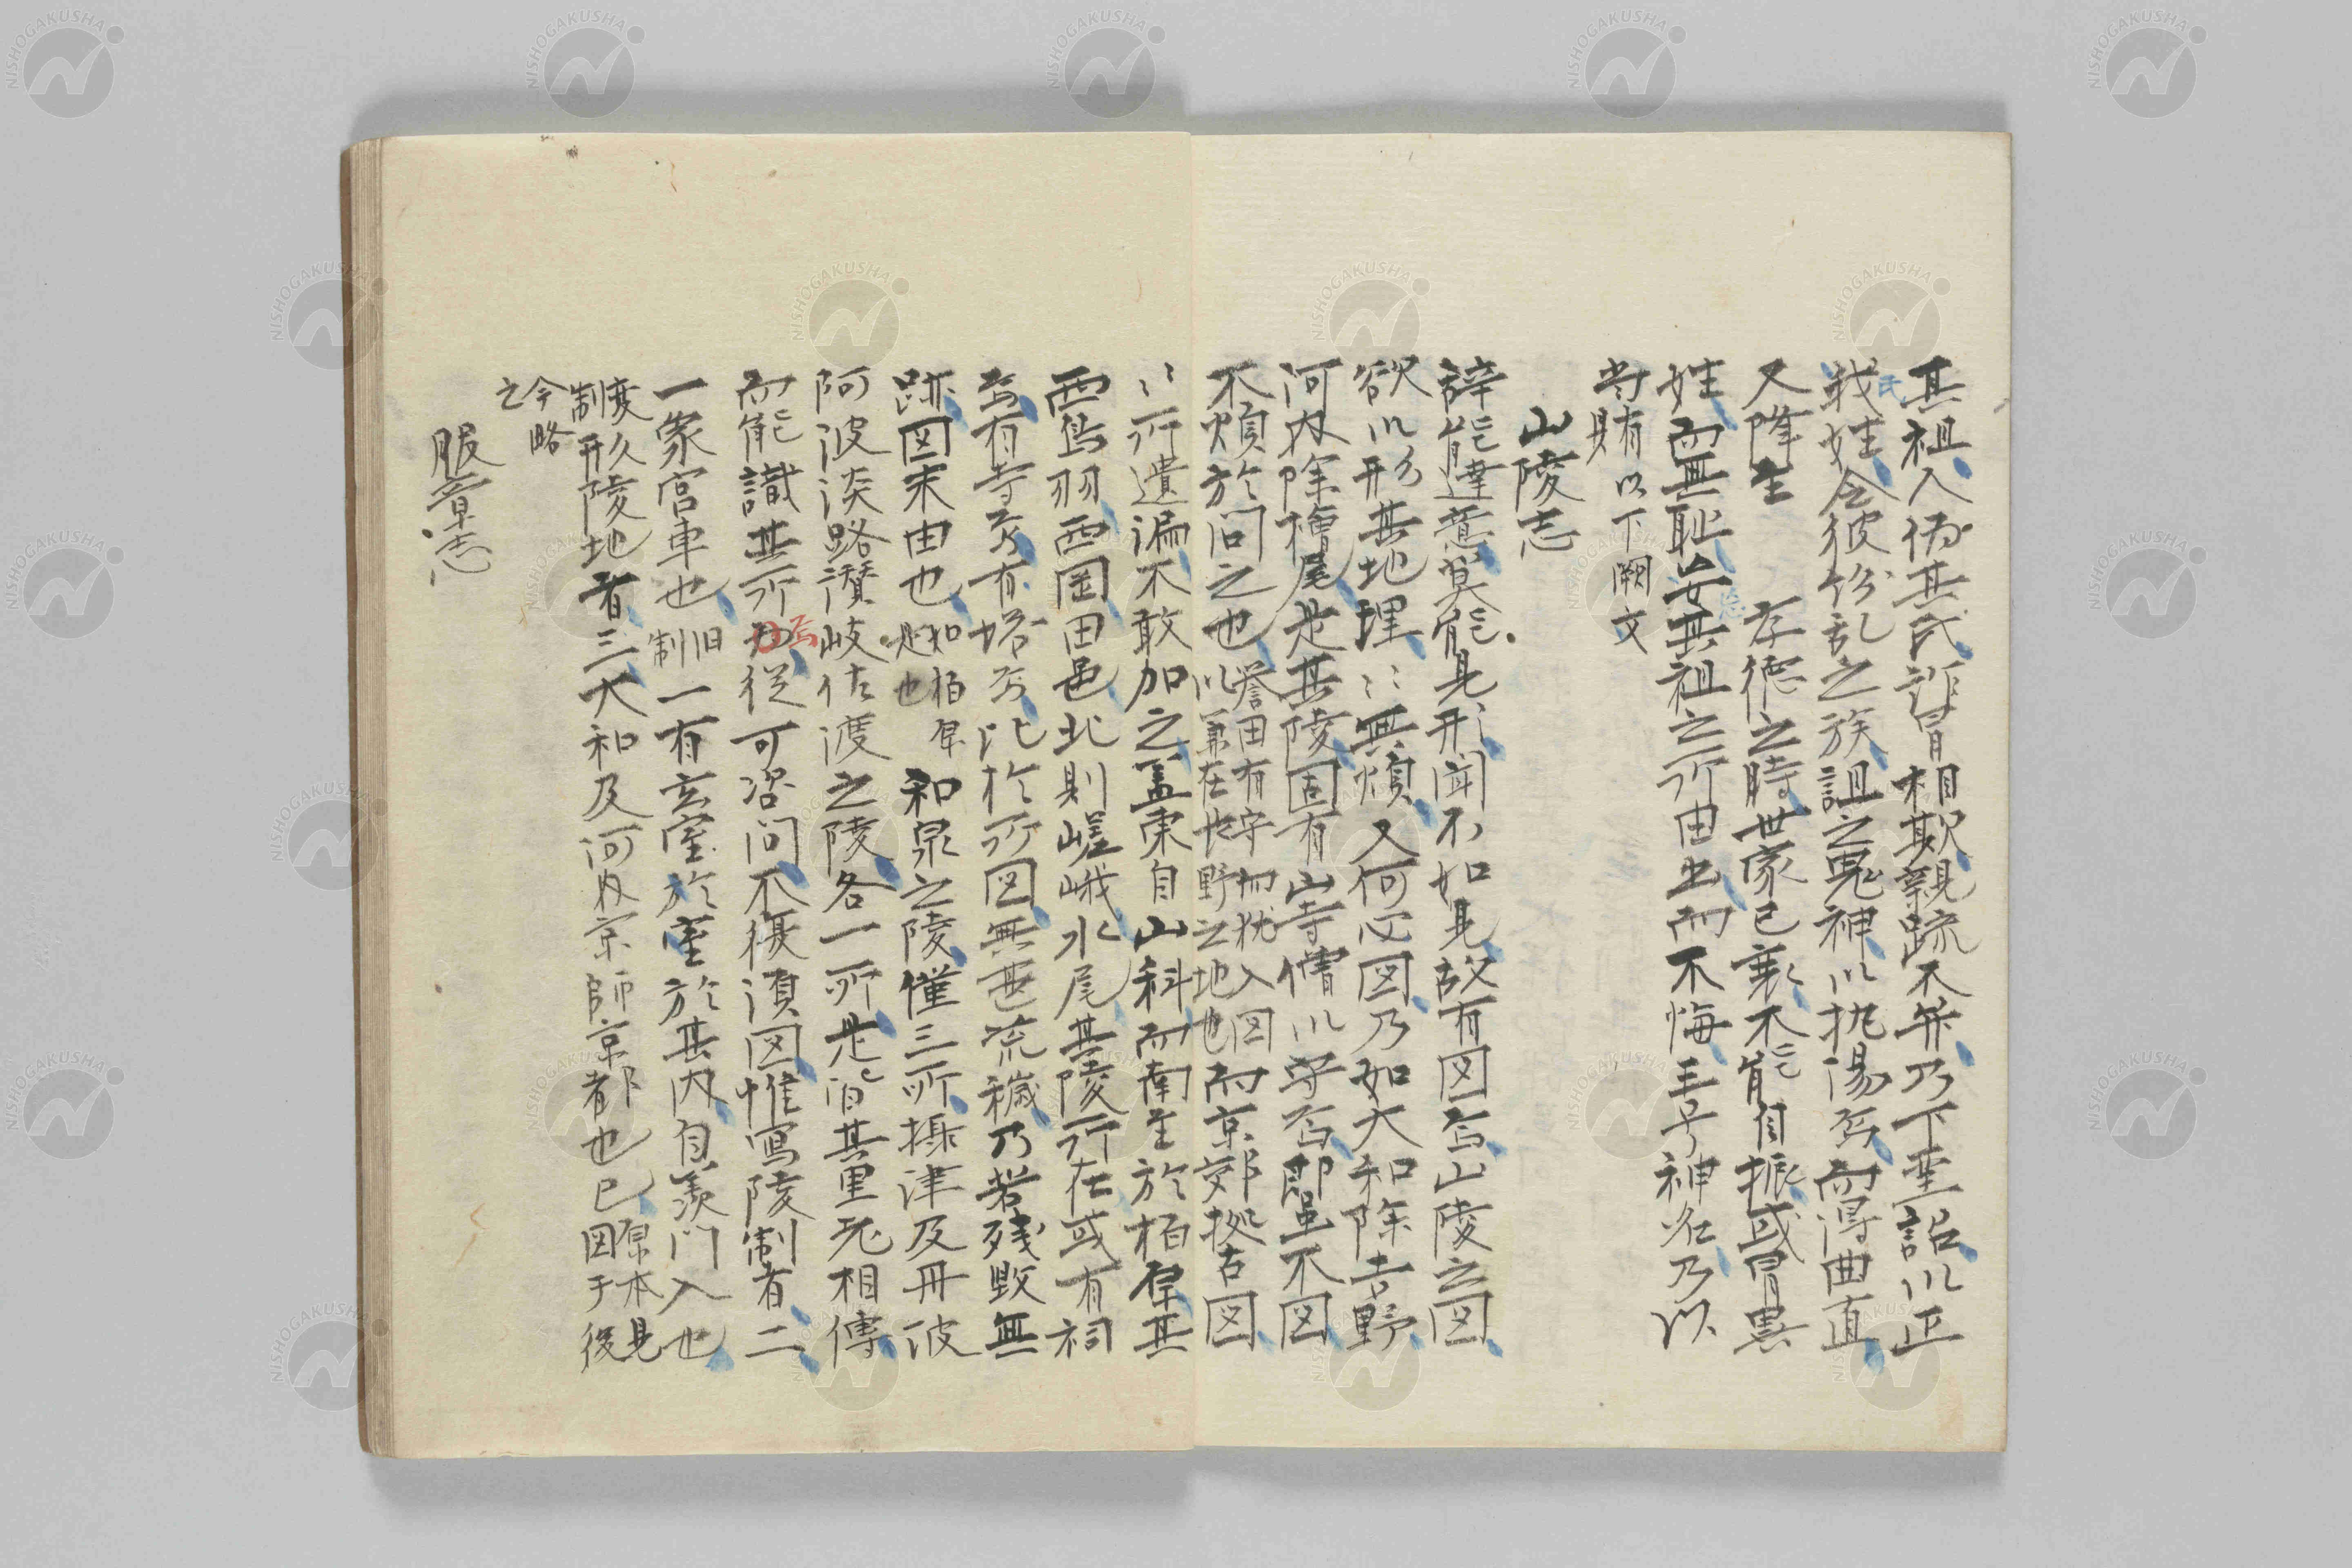 其祖入偽其氏詐冒相欺親疏不弁乃下垂詔以正
我姓氏令彼紛乱之族詛之鬼神以扰湯焉而得曲直
又降生 存徳之時世家已衰不能自振或冒異
姓而無恥忘其祖之所由出而不悔王号神名乃以
当賄 以下闕文
山陵志
辞能達意莫能見形聞不如見故有図焉山陵之図
欲以形其地理〻無煩又何必図乃如大和除吉野
河内除檜尾是其陵固有山寺僧以守焉即虽不図
不煩於问之也 誉田有守而犹入図
以第在長野之地也 而京郊拠古図
〻所遺漏不敢加之盖東自山科而南至於栢原其
西鳥羽西岡田邑北則嵯峨水尾其陵所在或有祠
焉有寺焉有塔焉比於所図無甚流穢乃若残毀無
跡図末由也 如栢原
是也 和泉之陵僅三所摂津及丹波
阿波淡路讃岐佐渡之陵各一所是自其里兆相傳
而能識其所焉従可咨问不復須図惟寫陵制有二
一象宮車也 旧
制 一有玄室於室於其内自羨门入也
制度久形陵地有三大和及河内京師京都也已 原本見
図于後
今略
之
服章志
NISHOGAKUSHA